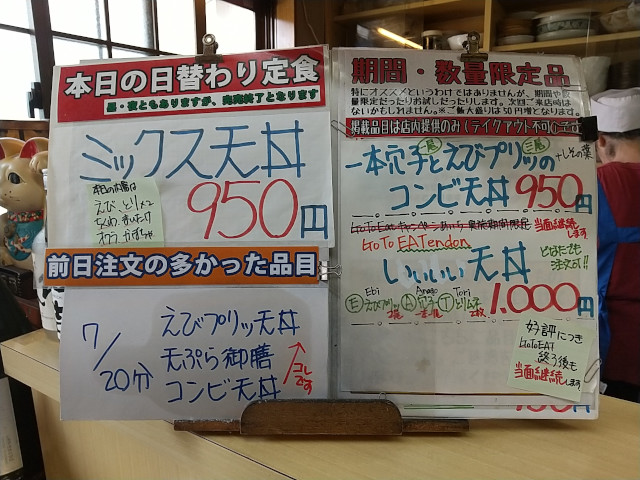 本日の日替わり定食
昼・夜ともありますが、完売終了となります
ミックス天丼
950円
本日の内容は
えび、とりムネ
ちくわ、まいたけ
オクラ、かぼちゃ
前日注文の多かった品目
7/20分
えびプリッ天丼
天ぷら御膳
コンビ天丼
コレです
期間・数量限定品
特にオススメというわけではありませんが、期間や数
量限定だったりお試しだったりします。次回ご来店時は
ないかもしれません。※ご飯大盛りは50円増となります。
掲載品目は店内提供のみ(テイクアウト不可)です
一本穴子とえびプリッの
一尾
三尾
+しその葉
コンビ天丼 950円
GoToEatキャンペーンあやかり 実施期間限定
当面継続します
GoTo EATendon
いいいい天丼
どなたでも
注文可!!
Ebi Anago Tori
Ⓔえびプリッ Ⓐ穴子 Ⓣとりムネ
1.000円
好評につき
GoToEAT
終了後も
当面継続します